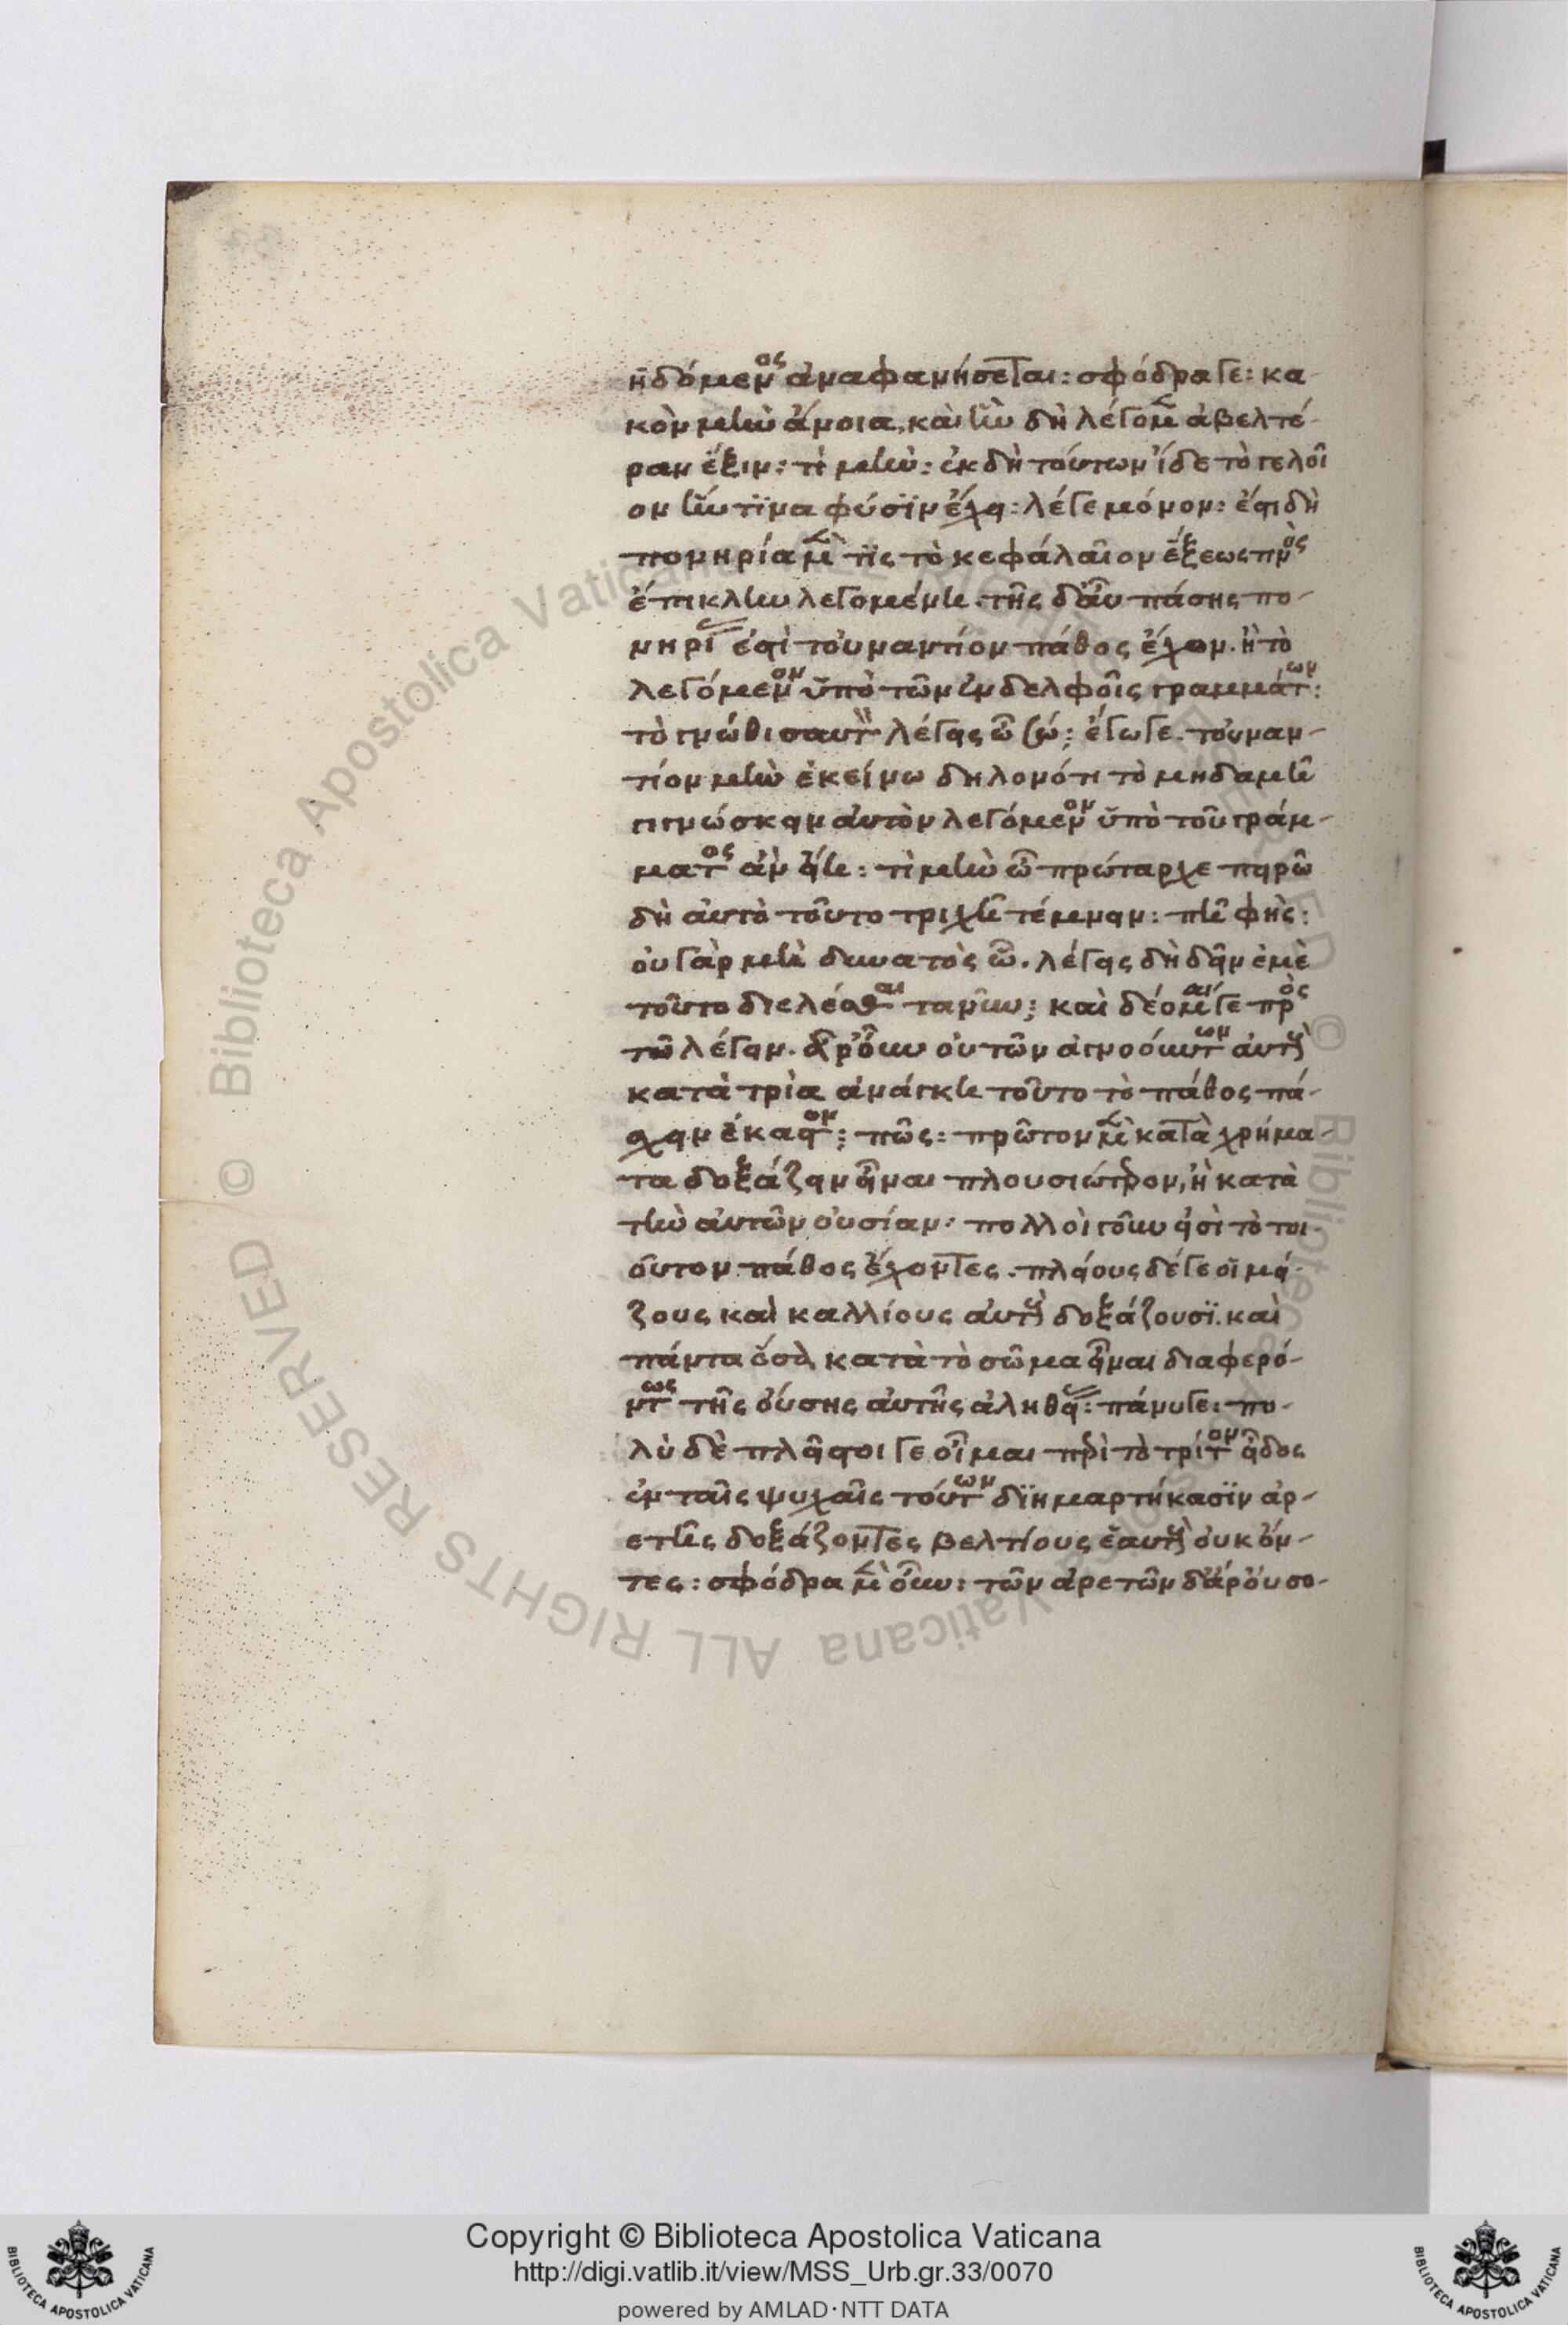 ἡδόμενος ἀναφανήσεται: σφόδρα γε: κα-
κὸν μὴν ἄνοια, καὶ ἣν δὴ λέγομεν ἀβελτέ-
ραν ἕξιν: τί μήν: ἐκ δὴ τούτων ἴδε τὸ γελοῖ
ον ἥντινα φύσιν ἔχει: λέγε μόνον: ἔστι δὴ
πονηρία μέν τις τὸ κεφάλαιον ἕξεώς τινος
ἐπίκλην λεγομένη. τῆς δ' αὖ πάσης πο-
νηρίας ἐστὶ τοὐναντίον πάθος ἔχον. ἢ τὸ
λεγόμενον ὑπὸ τῶν ἐν δελφοῖς γραμμάτων:
τὸ γνῶθι σαυτὸν λέγεις ὦ σώ; ἔγωγε. τοὐναν-
τίον μὴν ἐκείνω δηλονότι τὸ μηδαμῆ
γιγνώσκειν αὐτὸν λεγόμενον ὑπὸ τοῦ γράμ-
ματος ἂν εἴη: τί μήν ὦ πρώταρχε πειρῶ
δὴ αὐτὸ τοῦτο τριχῆ τέμνειν: πῆ φής:
οὐ γὰρ μὴ δυνατὸς ὦ. λέγεις δὴ δεῖν ἐμὲ
τοῦτο διελέσθαι τανῦν; καὶ δέομαί γε πρὸς
τῶ λέγειν. ἆρ' οὖν οὐ τῶν ἀγνοούντων αὑτοὺς
κατὰ τρία ἀνάγκη τοῦτο τὸ πάθος πά-
σχειν ἕκαστον; πῶς: πρῶτον μὲν κατὰ χρήμα-
τα δοξάζειν εἶναι πλουσιώτερον, ἢ κατὰ
τὴν αὐτῶν οὐσίαν: πολλοὶ γοῦν εἰσὶ τὸ τοι-
οῦτον πάθος ἔχοντες. πλείους δέ γε οἳ μεί-
ζους καὶ καλλίους αὑτοὺς δοξάζουσι. καὶ
πάντα ὅσα κατὰ τὸ σῶμα εἶναι διαφερό-
ντως τῆς οὔσης αὐτῆς ἀληθείας: πάνυ γε: πο-
λὺ δὲ πλεῖστοι γε οἶμαι περὶ τὸ τρίτον εἶδος
ἐν ταῖς ψυχαῖς τούτων διημαρτήκασιν ἀρ-
ετῆς δοξάζοντες βελτίους ἑαυτοὺς οὐκ ὄν-
τες: σφόδρα μὲν οὖν: τῶν ἀρετῶν δ' ἆρ' οὐ σο-
Copyright © Biblioteca Apostolica Vaticana
http://digi.vatlib.it/view/MSS_Urb.gr.33/0070
powered by AMLAD·NTT DATA